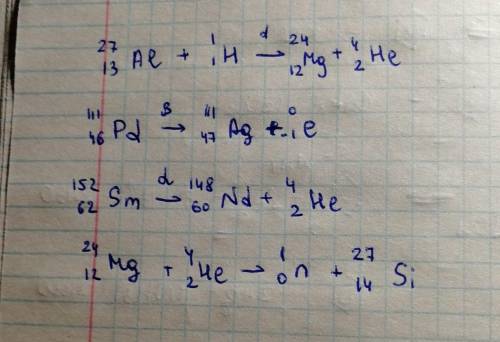 ²⁷₁₃Al + ¹₁H →(α) ²⁴₁₂Mg + ⁴₂He
¹¹¹₄₆Pd →(β) ¹¹¹₄₇Ag + ⁰₋₁e
¹⁵²₆₂Sm →(α) ¹⁴⁸₆₀Nd + ⁴₂He
²⁴₁₂Mg + ⁴₂He → ¹₀n + ²⁷₁₄Si